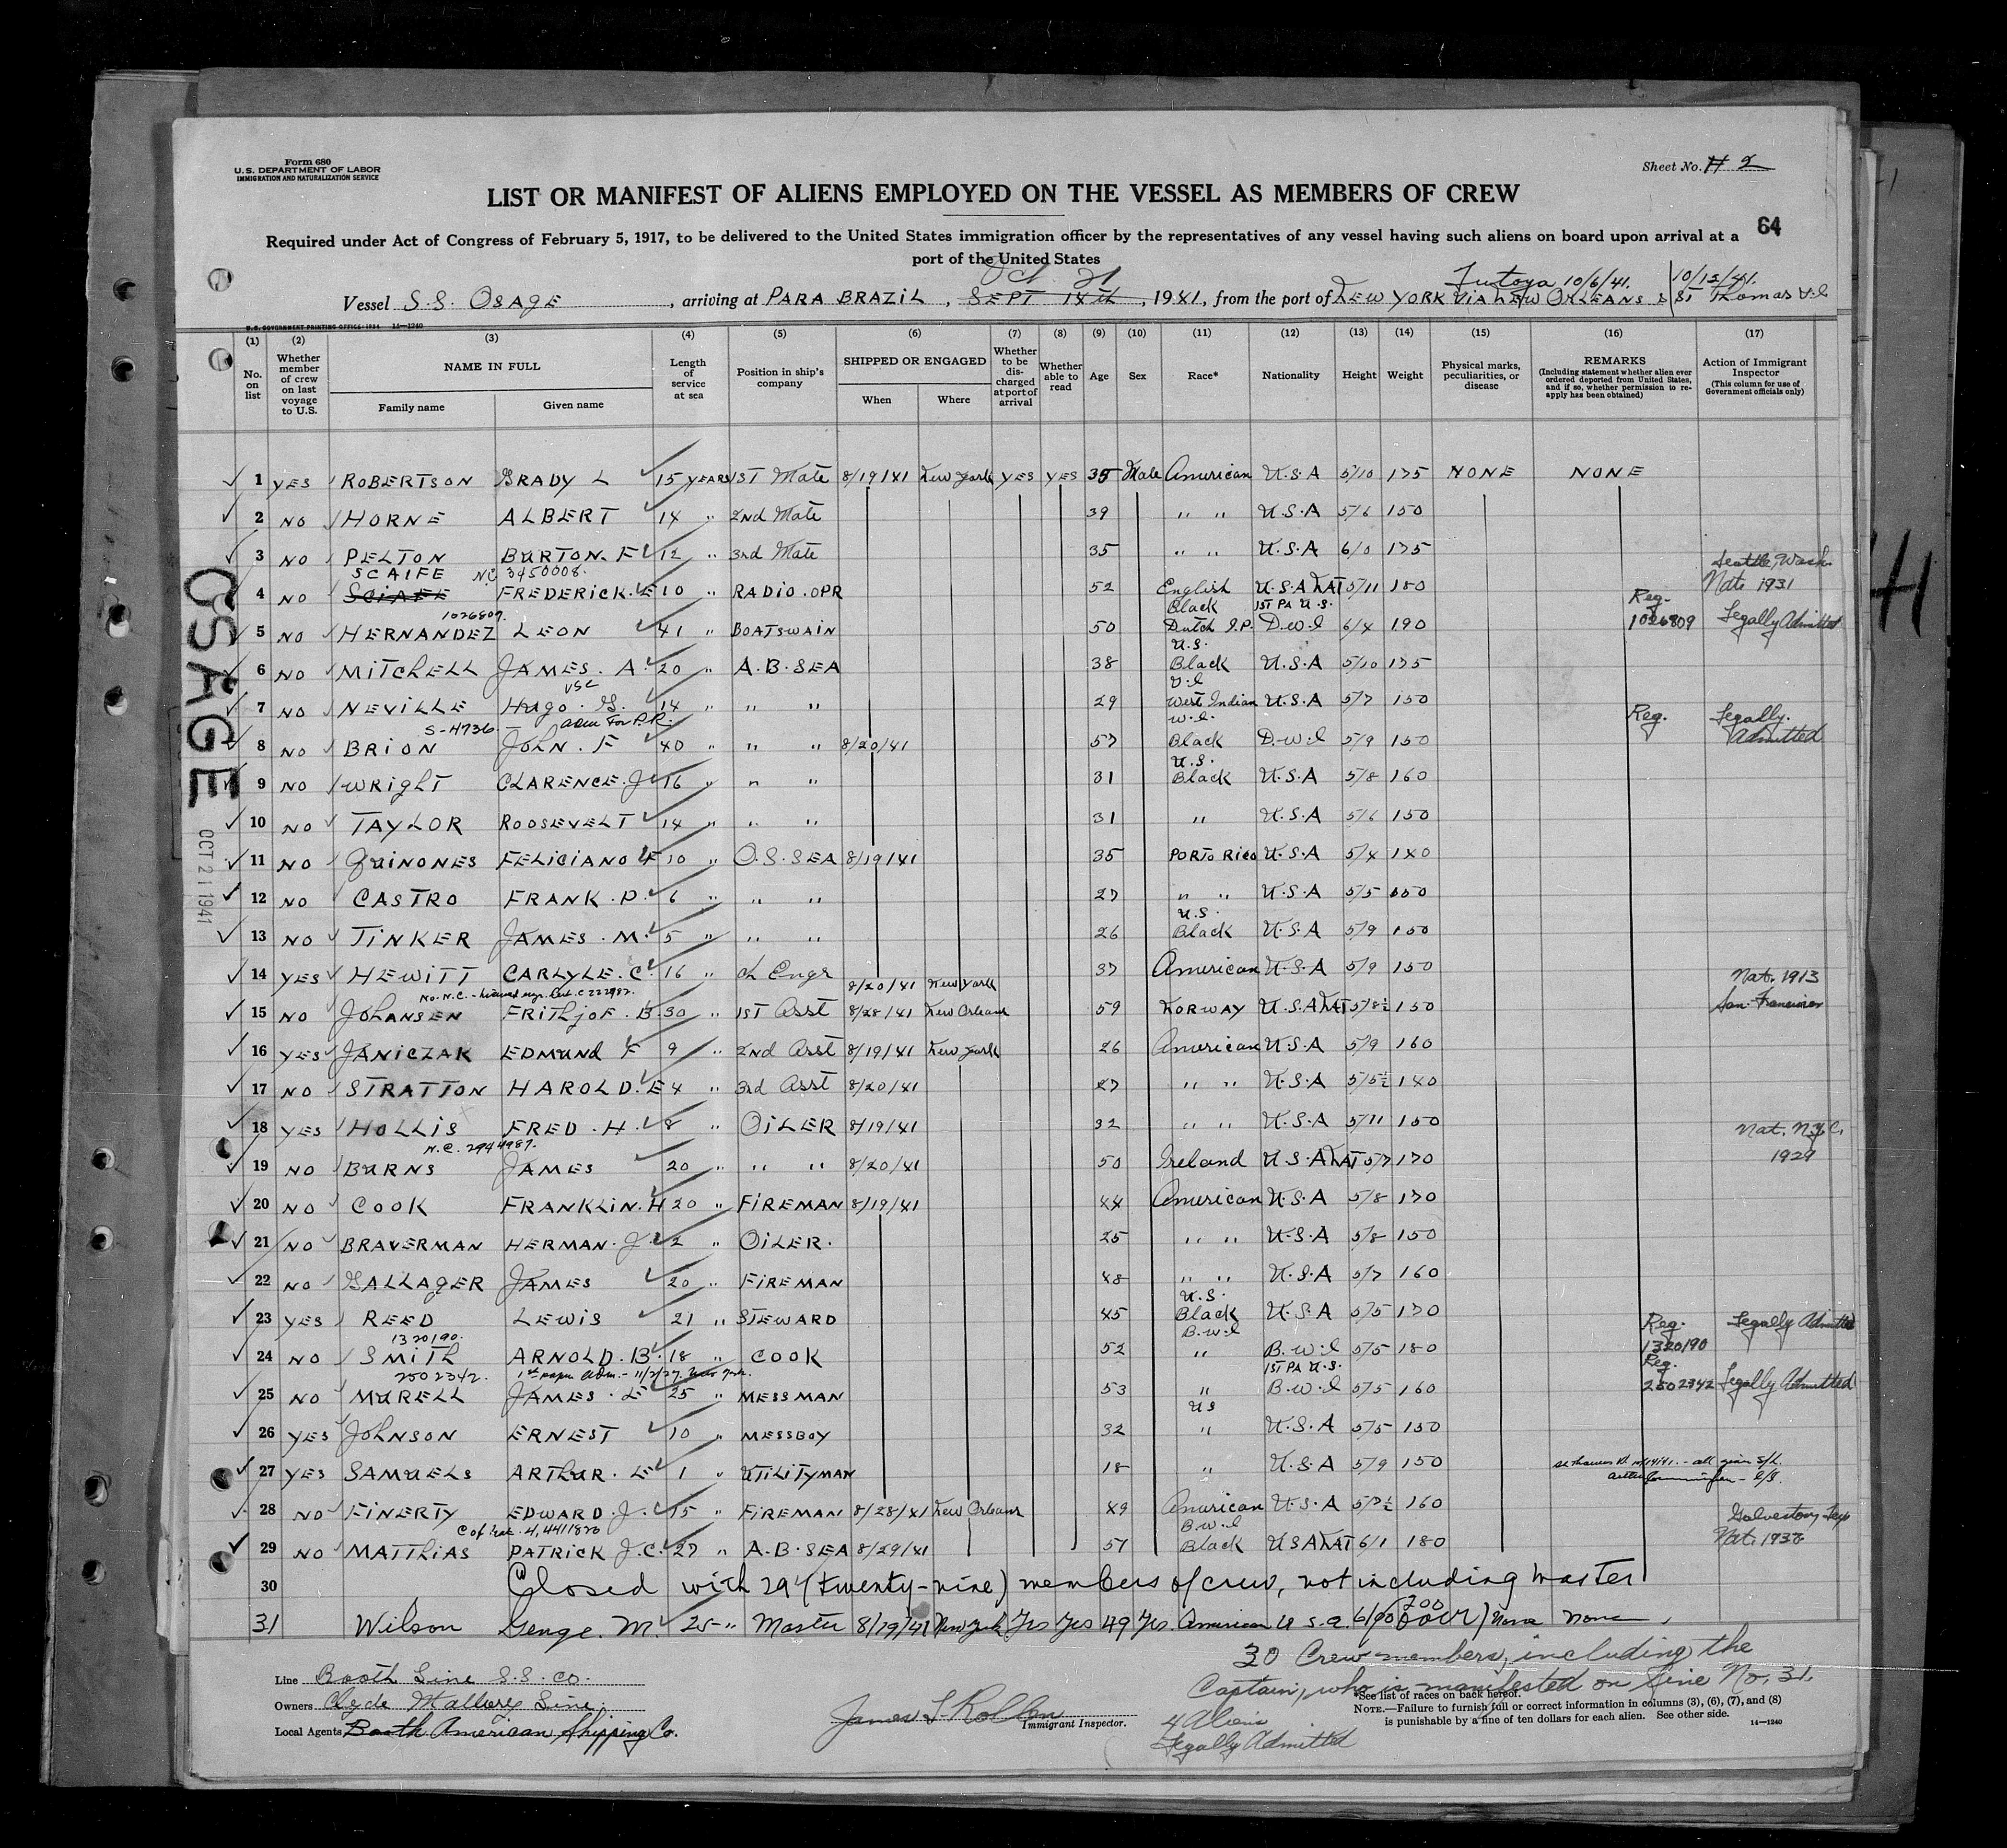 Form 680
U.S. DEPARTMENT OF LABOR
IMMIGRATION AND NATURALIZATION SERVICE
Sheet No. 2
LIST OR MANIFEST OF ALIENS EMPLOYED ON THE VESSEL AS MEMBERS OF CREW
64
Required under Act of Congress of February 5, 1917, to be delivered to the United States immigration officer by the representatives of any vessel having such aliens on board upon arrival at a
port of the United States
Oct 21 Tutoya 10/6/41. 10/12/41.
Vessel S.S. OSAGE, arriving at PARA BRAZIL, SEPT 18th, 1941, from the port of NEW YORK VIA NEW ORLEANS & ST Thomas V.I
U.S. GOVERNMENT PRINTING OFFICE: 1934 14—1240
(1) (2) (3) (4) (5) (6) (7) (8) (9) (10) (11) (12) (13) (14) (15) (16) (17)
No. on list
Whether member of crew on last voyage to U.S.
NAME IN FULL
Family name
Given name
Length of service at sea
Position in ship's company
SHIPPED OR ENGAGED
When
Where
Whether to be discharged at port of arrival
Whether able to read
Age
Sex
Race*
Nationality
Height
Weight
Physical marks, peculiarities, or disease
REMARKS
(Including statement whether alien ever ordered deported from United States, and if so, whether permission to reapply has been obtained)
Action of Immigrant Inspector
(This column for use of Government officials only)
1 YES ROBERTSON GRADY L 15 YEARS 1ST Mate 8/19/41 New York YES YES 35 Male American U.S.A 5/10 175 NONE NONE
2 NO HORNE ALBERT 14 " 2nd Mate 39 " " U.S.A 5/6 150
3 NO PELTON BURTON. F 12 " 3rd Mate 35 " " U.S.A 6/0 175
SCAIFE N.C 3450008. Seattle, Wash.
4 NO SCIAFE FREDERICK. E 10 " RADIO.OPR 52 English U.S.A NAT 5/11 180 Nat. 1931
1026809. Black 1ST PA U.S. Reg.
5 NO HERNANDEZ LEON 41 " BOATSWAIN 50 Dutch D.W.I 6/4 190 1026809 Legally Admitted
U.S.
6 NO MITCHELL JAMES. A. 20 " A.B. SEA 38 Black U.S.A 5/10 175
V.I
7 NO NEVILLE Hugo. G. 14 " " " 29 West Indian U.S.A 5/7 150
S-4736 adm For P.R. W.I. Reg. Legally.
8 NO BRION JOHN. F 40 " " " 8/20/41 57 Black D.W.I 5/9 150 Admitted
U.S.
9 NO WRIGHT CLARENCE. J 16 " " " 31 Black U.S.A 5/8 160
10 NO TAYLOR ROOSEVELT 14 " " " 31 " U.S.A 5/6 150
11 NO QUINONES FELICIANO F 10 " O.S. SEA 8/19/41 35 PORTO RICO U.S.A 5/4 140
12 NO CASTRO FRANK. P. 6 " " " 27 " " U.S.A 5/5
U.S.
13 NO TINKER JAMES. M. 5 " " " 26 Black U.S.A 5/9 150
14 YES HEWITT CARLYLE. C. 16 " Ch Engr 8/20/41 New York 37 American U.S.A 5/9 150 Nat. 1913
15 NO JOHANSEN FRITHJOF. B. 30 " 1ST Asst 8/28/41 New Orleans 59 NORWAY U.S.A NAT 5/8½ 150 San Francisco
16 YES JANICZAK EDMUND F 9 " 2nd Asst 8/19/41 New York 26 American U.S.A 5/9 160
17 NO STRATTON HAROLD. E 4 " 3rd Asst 8/20/41 27 " " U.S.A 5/5½ 140
18 YES HOLLIS FRED. H. 8 " OILER 8/19/41 32 " " U.S.A 5/11 150
N.C. 2944987. Nat. N.Y.C.
19 NO BURNS JAMES 20 " " " 8/20/41 50 Ireland U.S.A NAT 5/7 170 1929
20 NO COOK FRANKLIN. H 20 " FIREMAN 8/19/41 44 American U.S.A 5/8 170
21 NO BRAVERMAN HERMAN. J. 2 " OILER. 25 " " U.S.A 5/8 150
22 NO GALLAGER JAMES 20 " FIREMAN 48 " " U.S.A 5/7 160
U.S.
23 YES REED LEWIS 21 " STEWARD 45 Black U.S.A 5/5 170
1320190. B.W.I Reg. Legally Admitted
24 NO SMITH ARNOLD. B. 18 " COOK 52 " B.W.I 5/5 180 1320190
2502342. 1st paper Adm. - 11/2/27. New York. 1ST PA U.S. Reg.
25 NO MURELL JAMES. E 25 " MESSMAN 53 " B.W.I 5/5 160 2502342 Legally Admitted
US
26 YES JOHNSON ERNEST 10 " MESSBOY 32 " U.S.A 5/5 150
27 YES SAMUELS ARTHUR. L 1 " UTILITYMAN 18 " U.S.A 5/9 150
28 NO FINERTY EDWARD. J. 15 " FIREMAN 8/28/41 New Orleans 49 American U.S.A 5/7½ 160
C of Nat. 4,411820 B.W.I Galveston, Tex
29 NO MATTHIAS PATRICK J.C. 27 " A.B. SEA 8/29/41 51 Black USA NAT 6/1 180 Nat. 1938
30 Closed with 29 (twenty-nine) members of crew, not including Master
31 Wilson George. M. 25 " Master 8/19/41 New York Yes Yes 49 Yes. American U.S.A. 6/00 200 None None
30 Crew members, including the
Captain, who is manifested on Line No. 31.
4 Aliens
Legally Admitted
Line Booth Line S.S. Co.
Owners Clyde Mallory Line.
Local Agents Booth American Shipping Co.
Immigrant Inspector.
*See list of races on back hereof.
NOTE.—Failure to furnish full or correct information in columns (3), (6), (7), and (8)
is punishable by a fine of ten dollars for each alien. See other side.
14—1240
OSAGE
OCT 21 1941
H